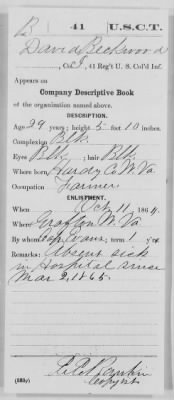 B 41 U.S.C.T.
David Beckwood
, Co. I, 41 Reg't U. S. Col'd Inf.
Appears on
Company Descriptive Book
of the organization named above.
DESCRIPTION.
Age 29 years; height 5 feet 10 inches.
Complexion Blk.
Eyes Blk; hair Blk.
Where born Hardy Co. W. Va
Occupation Farmer
ENLISTMENT.
When Oct 11, 1864.
Where Grafton W. Va
By whom Cap. Evans; term 1 y'rs.
Remarks: Absent sick
in Hospital since
Mar 2, 1865.
Rankin
Copyist.